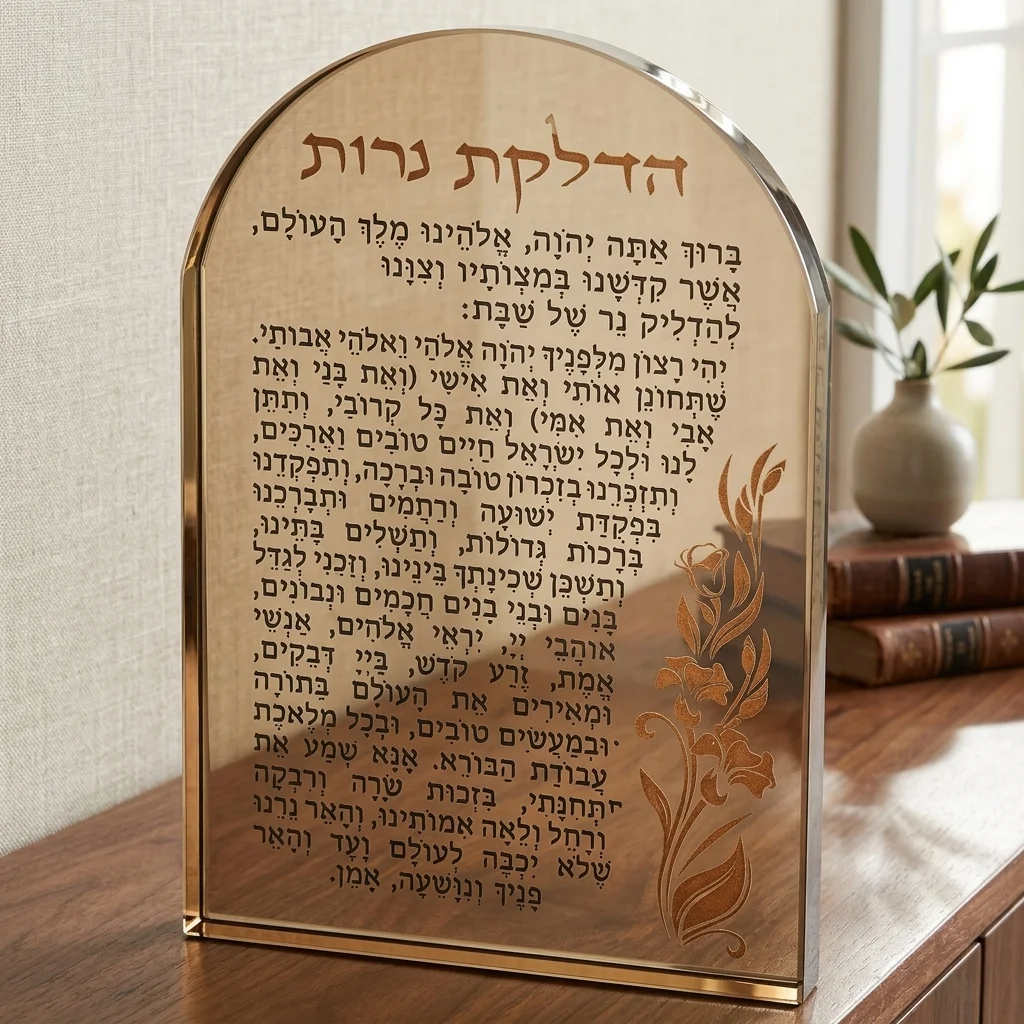 הדלקת נרות
בָּרוּךְ אַתָּה יְהֹוָה, אֱלֹהֵינוּ מֶלֶךְ הָעוֹלָם,
אֲשֶׁר קִדְּשָׁנוּ בְּמִצְוֹתָיו וְצִוָּנוּ
לְהַדְלִיק נֵר שֶׁל שַׁבָּת:
יְהִי רָצוֹן מִלְּפָנֶיךָ יְהֹוָה אֱלֹהַי וֵאלֹהֵי אֲבוֹתַי.
שֶׁתְּחוֹנֵן אוֹתִי וְאֶת אִישִׁי (וְאֶת בָּנַי וְאֶת
אָבִי וְאֶת אִמִּי) וְאֶת כָּל קְרוֹבַי, וְתִתֵּן
לָנוּ וּלְכָל יִשְׂרָאֵל חַיִּים טוֹבִים וַאֲרֻכִּים,
וְתִזְכְּרֵנוּ בְּזִכְרוֹן טוֹבָה וּבְרָכָה, וְתִפְקְדֵנוּ
בִּפְקֻדַּת יְשׁוּעָה וְרַחֲמִים וּתְבָרְכֵנוּ
בְּרָכוֹת גְּדוֹלוֹת, וְתַשְׁלִים בָּתֵּינוּ,
וְתַשְׁכֵּן שְׁכִינָתְךָ בֵּינֵינוּ, וְזַכֵּנִי לְגַדֵּל
בָּנִים וּבְנֵי בָנִים חֲכָמִים וּנְבוֹנִים,
אוֹהֲבֵי יְיָ, יִרְאֵי אֱלֹהִים, אַנְשֵׁי
אֱמֶת, זֶרַע קֹדֶשׁ, בַּיְיָ דְּבֵקִים,
וּמְאִירִים אֶת הָעוֹלָם בַּתּוֹרָה
וּבְמַעֲשִׂים טוֹבִים, וּבְכָל מְלֶאכֶת
עֲבוֹדַת הַבּוֹרֵא. אָנָּא שְׁמַע אֶת
תְּחִנָּתִי, בִּזְכוּת שָׂרָה וְרִבְקָה
וְרָחֵל וְלֵאָה אִמּוֹתֵינוּ, וְהָאֵר נֵרֵנוּ
שֶׁלֹּא יִכְבֶּה לְעוֹלָם וָעֶד וְהָאֵר
פָּנֶיךָ וְנִוָּשֵׁעָה, אָמֵן.